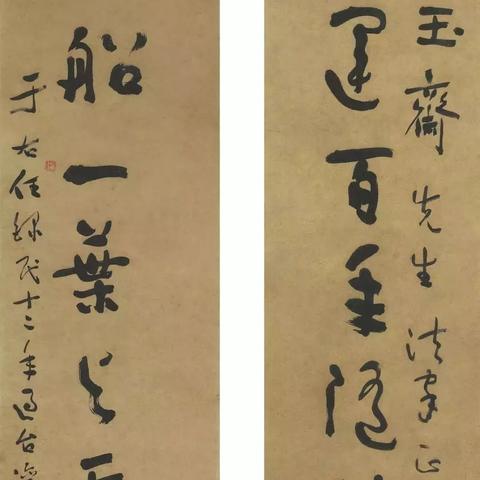 玉齋先生法家正
運百年隨
船一葉與
于右任 錄民十二年過台